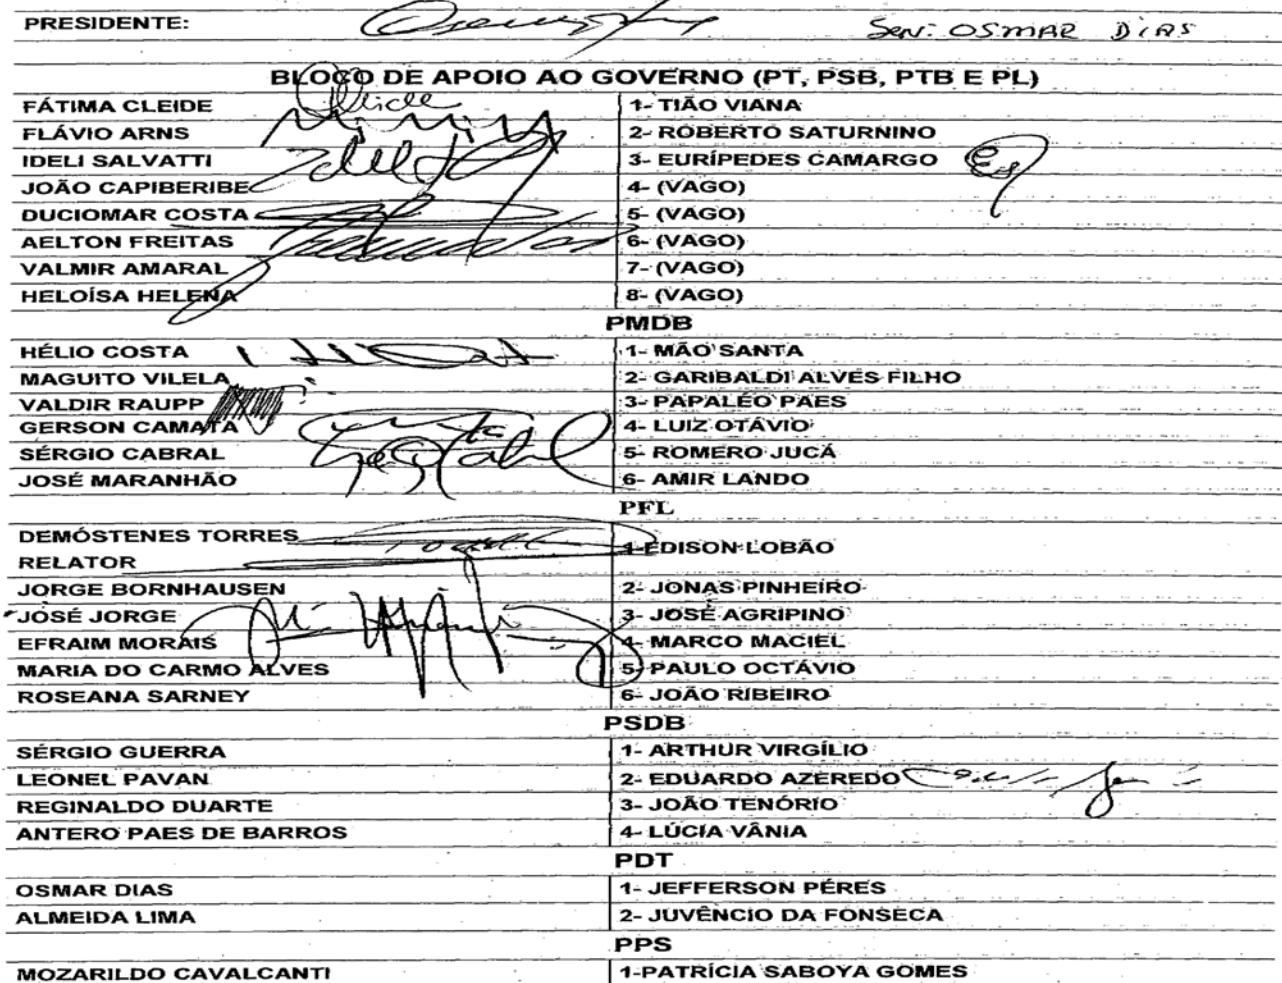 PRESIDENTE: SEN: OSMAR DIAS
BLOCO DE APOIO AO GOVERNO (PT, PSB, PTB E PL)
FÁTIMA CLEIDE 1- TIÃO VIANA
FLÁVIO ARNS 2- ROBERTO SATURNINO
IDELI SALVATTI 3- EURÍPEDES CAMARGO
JOÃO CAPIBERIBE 4- (VAGO)
DUCIOMAR COSTA 5- (VAGO)
AELTON FREITAS 6- (VAGO)
VALMIR AMARAL 7- (VAGO)
HELOÍSA HELENA 8- (VAGO)
PMDB
HÉLIO COSTA 1- MÃO SANTA
MAGUITO VILELA 2- GARIBALDI ALVES FILHO
VALDIR RAUPP 3- PAPALÉO PAES
GERSON CAMATA 4- LUIZ OTÁVIO
SÉRGIO CABRAL 5- ROMERO JUCÁ
JOSÉ MARANHÃO 6- AMIR LANDO
PFL
DEMÓSTENES TORRES
RELATOR 1-EDISON LOBÃO
JORGE BORNHAUSEN 2- JONAS PINHEIRO
JOSÉ JORGE 3- JOSÉ AGRIPINO
EFRAIM MORAIS 4- MARCO MACIEL
MARIA DO CARMO ALVES 5- PAULO OCTÁVIO
ROSEANA SARNEY 6- JOÃO RIBEIRO
PSDB
SÉRGIO GUERRA 1- ARTHUR VIRGÍLIO
LEONEL PAVAN 2- EDUARDO AZEREDO
REGINALDO DUARTE 3- JOÃO TENÓRIO
ANTERO PAES DE BARROS 4- LÚCIA VÂNIA
PDT
OSMAR DIAS 1- JEFFERSON PÉRES
ALMEIDA LIMA 2- JUVÊNCIO DA FONSECA
PPS
MOZARILDO CAVALCANTI 1-PATRÍCIA SABOYA GOMES